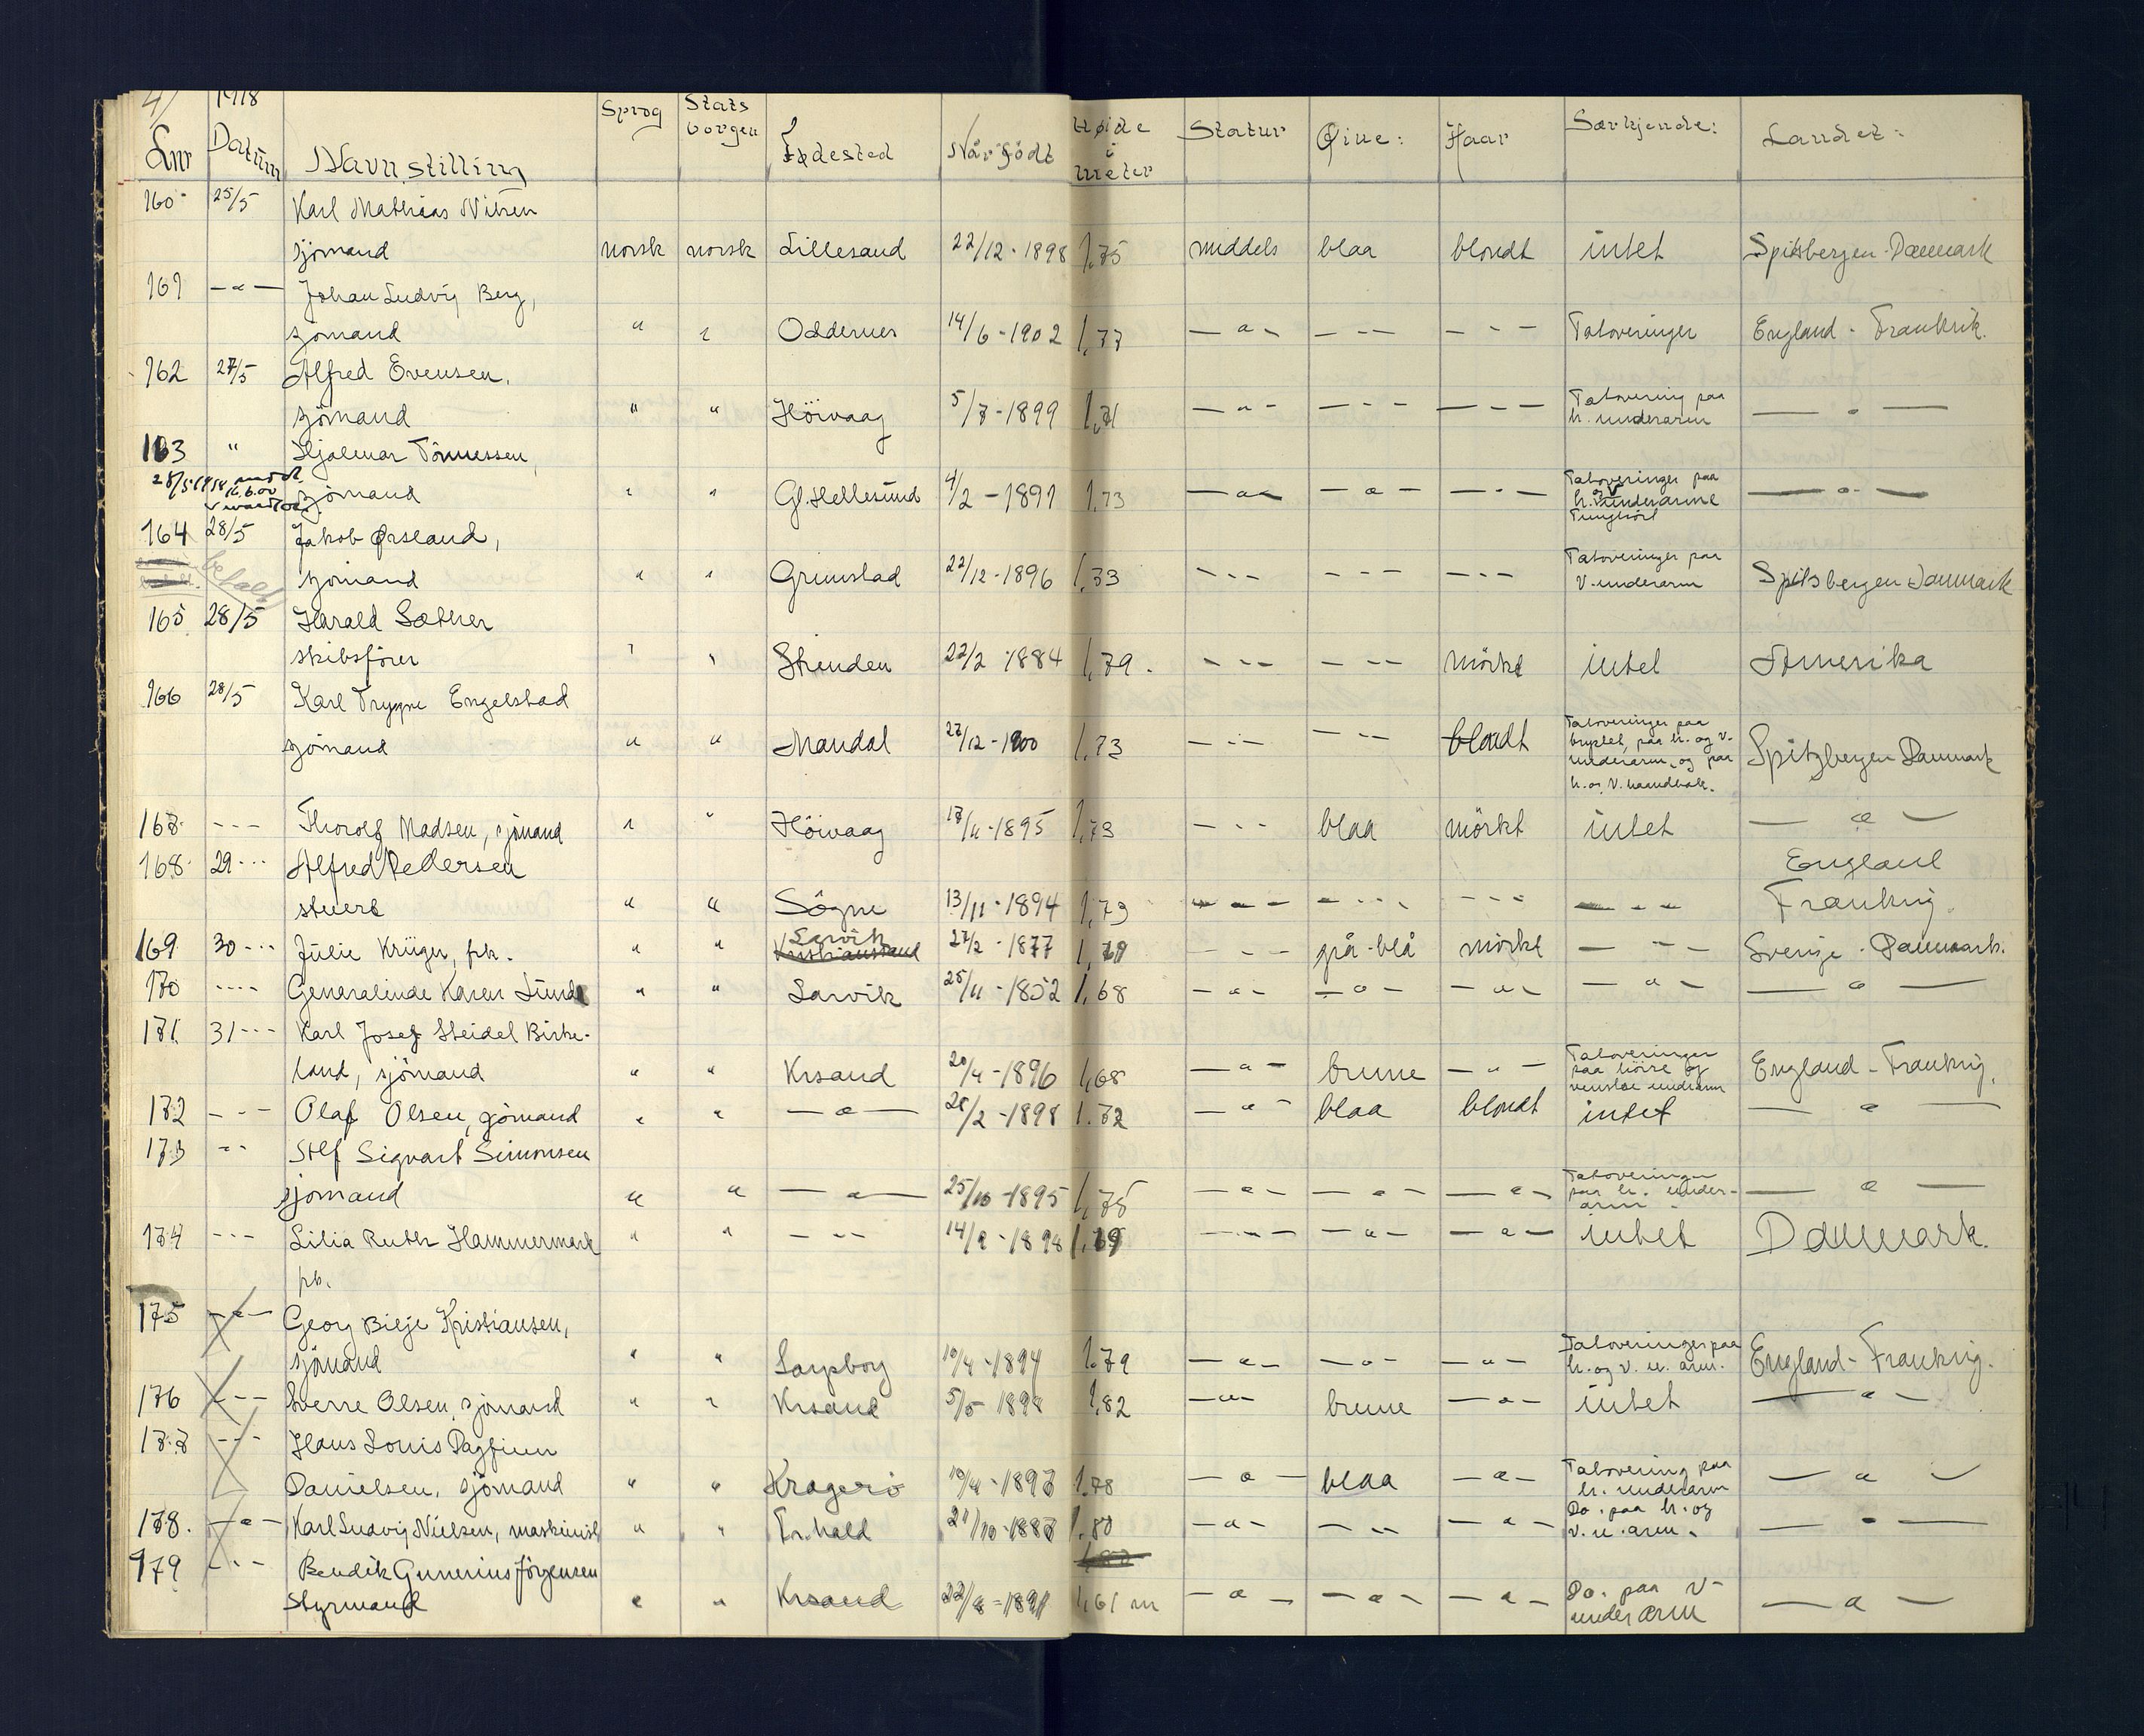 1918
Lnr Datum Navn, stilling Sprog Stats borgen Fødested Når født Høide i meter Statur Øine: Haar Særkjende: Landet:
160 25/5 Karl Mathias Nilsen
sjömand norsk norsk Lillesand 22/12-1898 1,75 middels blaa blondt intet Spitsbergen-Danmark
161 -"- Johan Ludvig Berg,
sjömand " " Oddernes 14/6-1902 1,77 -"- --- --- Tatoveringer England - Frankrik.
162 27/5 Alfred Evensen,
sjömand " " Höivaag 5/7-1899 1,71 -"- --- --- Tatovering paa h. underarm -"-
163 " Hjalmar Tönnessen,
sjömand " " Gl. Hellesund 4/2-1891 1,73 -"- -"- -"- Tatoveringer paa h. og v. underarme Tunghört -"-
164 28/5 Jakob Ørsland,
betalt
sjömand " " Grimstad 22/12-1896 1,73 --- --- --- Tatoveringer paa V. underarm Spitsbergen Danmark
165 28/5 Harald Sæther
skibsförer " " 22/2-1884 1,79. --- --- mörkt intet Amerika
166 28/5 Karl Trygve Engelstad
sjömand " " Mandal 27/12-1900 1,73 --- --- blondt Tatoveringer paa brystet, paa h. og v. underarm, og paa h. og v. haandbak. Spitzbergen Danmark
167 --- Thorolf Madsen, sjömand " " Höivaag 17/11-1895 1,73 --- blaa mörkt intet -"-
168 29--- Alfred Pedersen England
stuert " " Sögne 13/11-1894 1,73 --- --- --- --- Frankrig.
169 30--- Julie Krüger, frk. " " Larvik Kristiansand 27/2-1877 --- grå-blå mörkt --- Sverige - Danmark.
170 ---- Generalinde Karen Lunde " " Larvik 25/11-1852 1,68 -"- -"- -"- -"- -"-
171 31--- Karl Josef Steidel Birke-
land, sjömand " " Krsand 20/4-1896 1,68 -"- brune -"- Tatoveringer paa höire og venstre underarm England - Frankrig.
172 --- Olaf Olsen, sjömand " " -"- 1.72 -"- blaa blondt intet -"-
173 -- Alf Sigvart Simonsen
sjömand " " -"- 25/10-1895 1,75 -"- -"- -"- Tatoveringer paa h. under-arm -"-
174 --- Lilia Ruth Hammermark " " --- 14/9-1898 1,69 --- -"- -"- intet Danmark.
175 -"- Georg Kristiansen,
sjömand " " Sarpborg 10/4-1894 1.79 -"- -"- -"- Tatoveringer paa h. og v. u. arm. England - Frankrig.
176 --- Sverre Olsen, sjömand " " Krsand 5/5-1898 1,82 -"- brune -"- intet -"-
177 --- Hans Louis Dagfinn
Danielsen, sjömand " " Kragerö 10/4-1897 1.78 -"- blaa -"- Tatovering paa h. underarm -"-
178. -"- Karl Ludvig Nielsen, maskinist " " Fr.hald 21/10-1887 1.80 -"- --- -"- Do. paa h. og v. u. arm. -"-
179 --- Bendik Gunerius Jörgensen
Styrmand " " Krsand 1,61 m -"- -"- -"- Do. paa V-under arm -"-